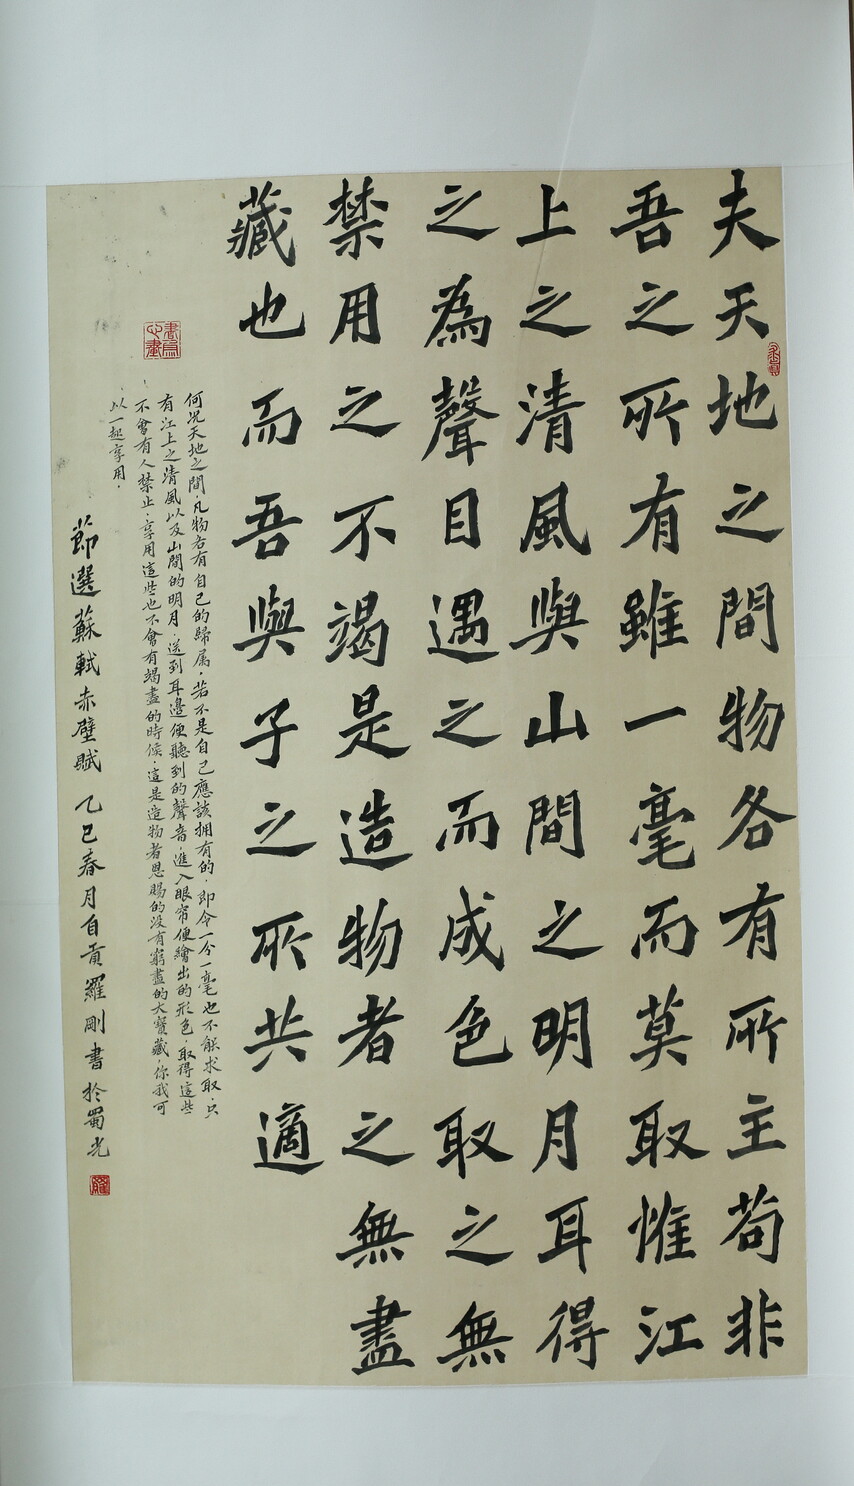 夫天地之間物各有所主苟非
吾之所有雖一毫而莫取惟江
上之清風與山間之明月耳得
之為聲目遇之而成色取之無
禁用之不竭是造物者之無盡
藏也而吾與子之所共適
書為心畫
何況天地之間，凡物各有自己的歸屬，若不是自己應該拥有的，即令一分一毫也不能求取，只
有江上之清風以及山間的明月，送到耳邊便聽到的聲音，進入眼帘便繪出的形色，取得這些
不會有人禁止，享用這些也不會有竭盡的時候，這是造物者恩賜的没有窮盡的大寶藏，你我可
以一起享用。
節選蘇軾赤壁賦 乙巳春月自貢羅剛書於蜀光